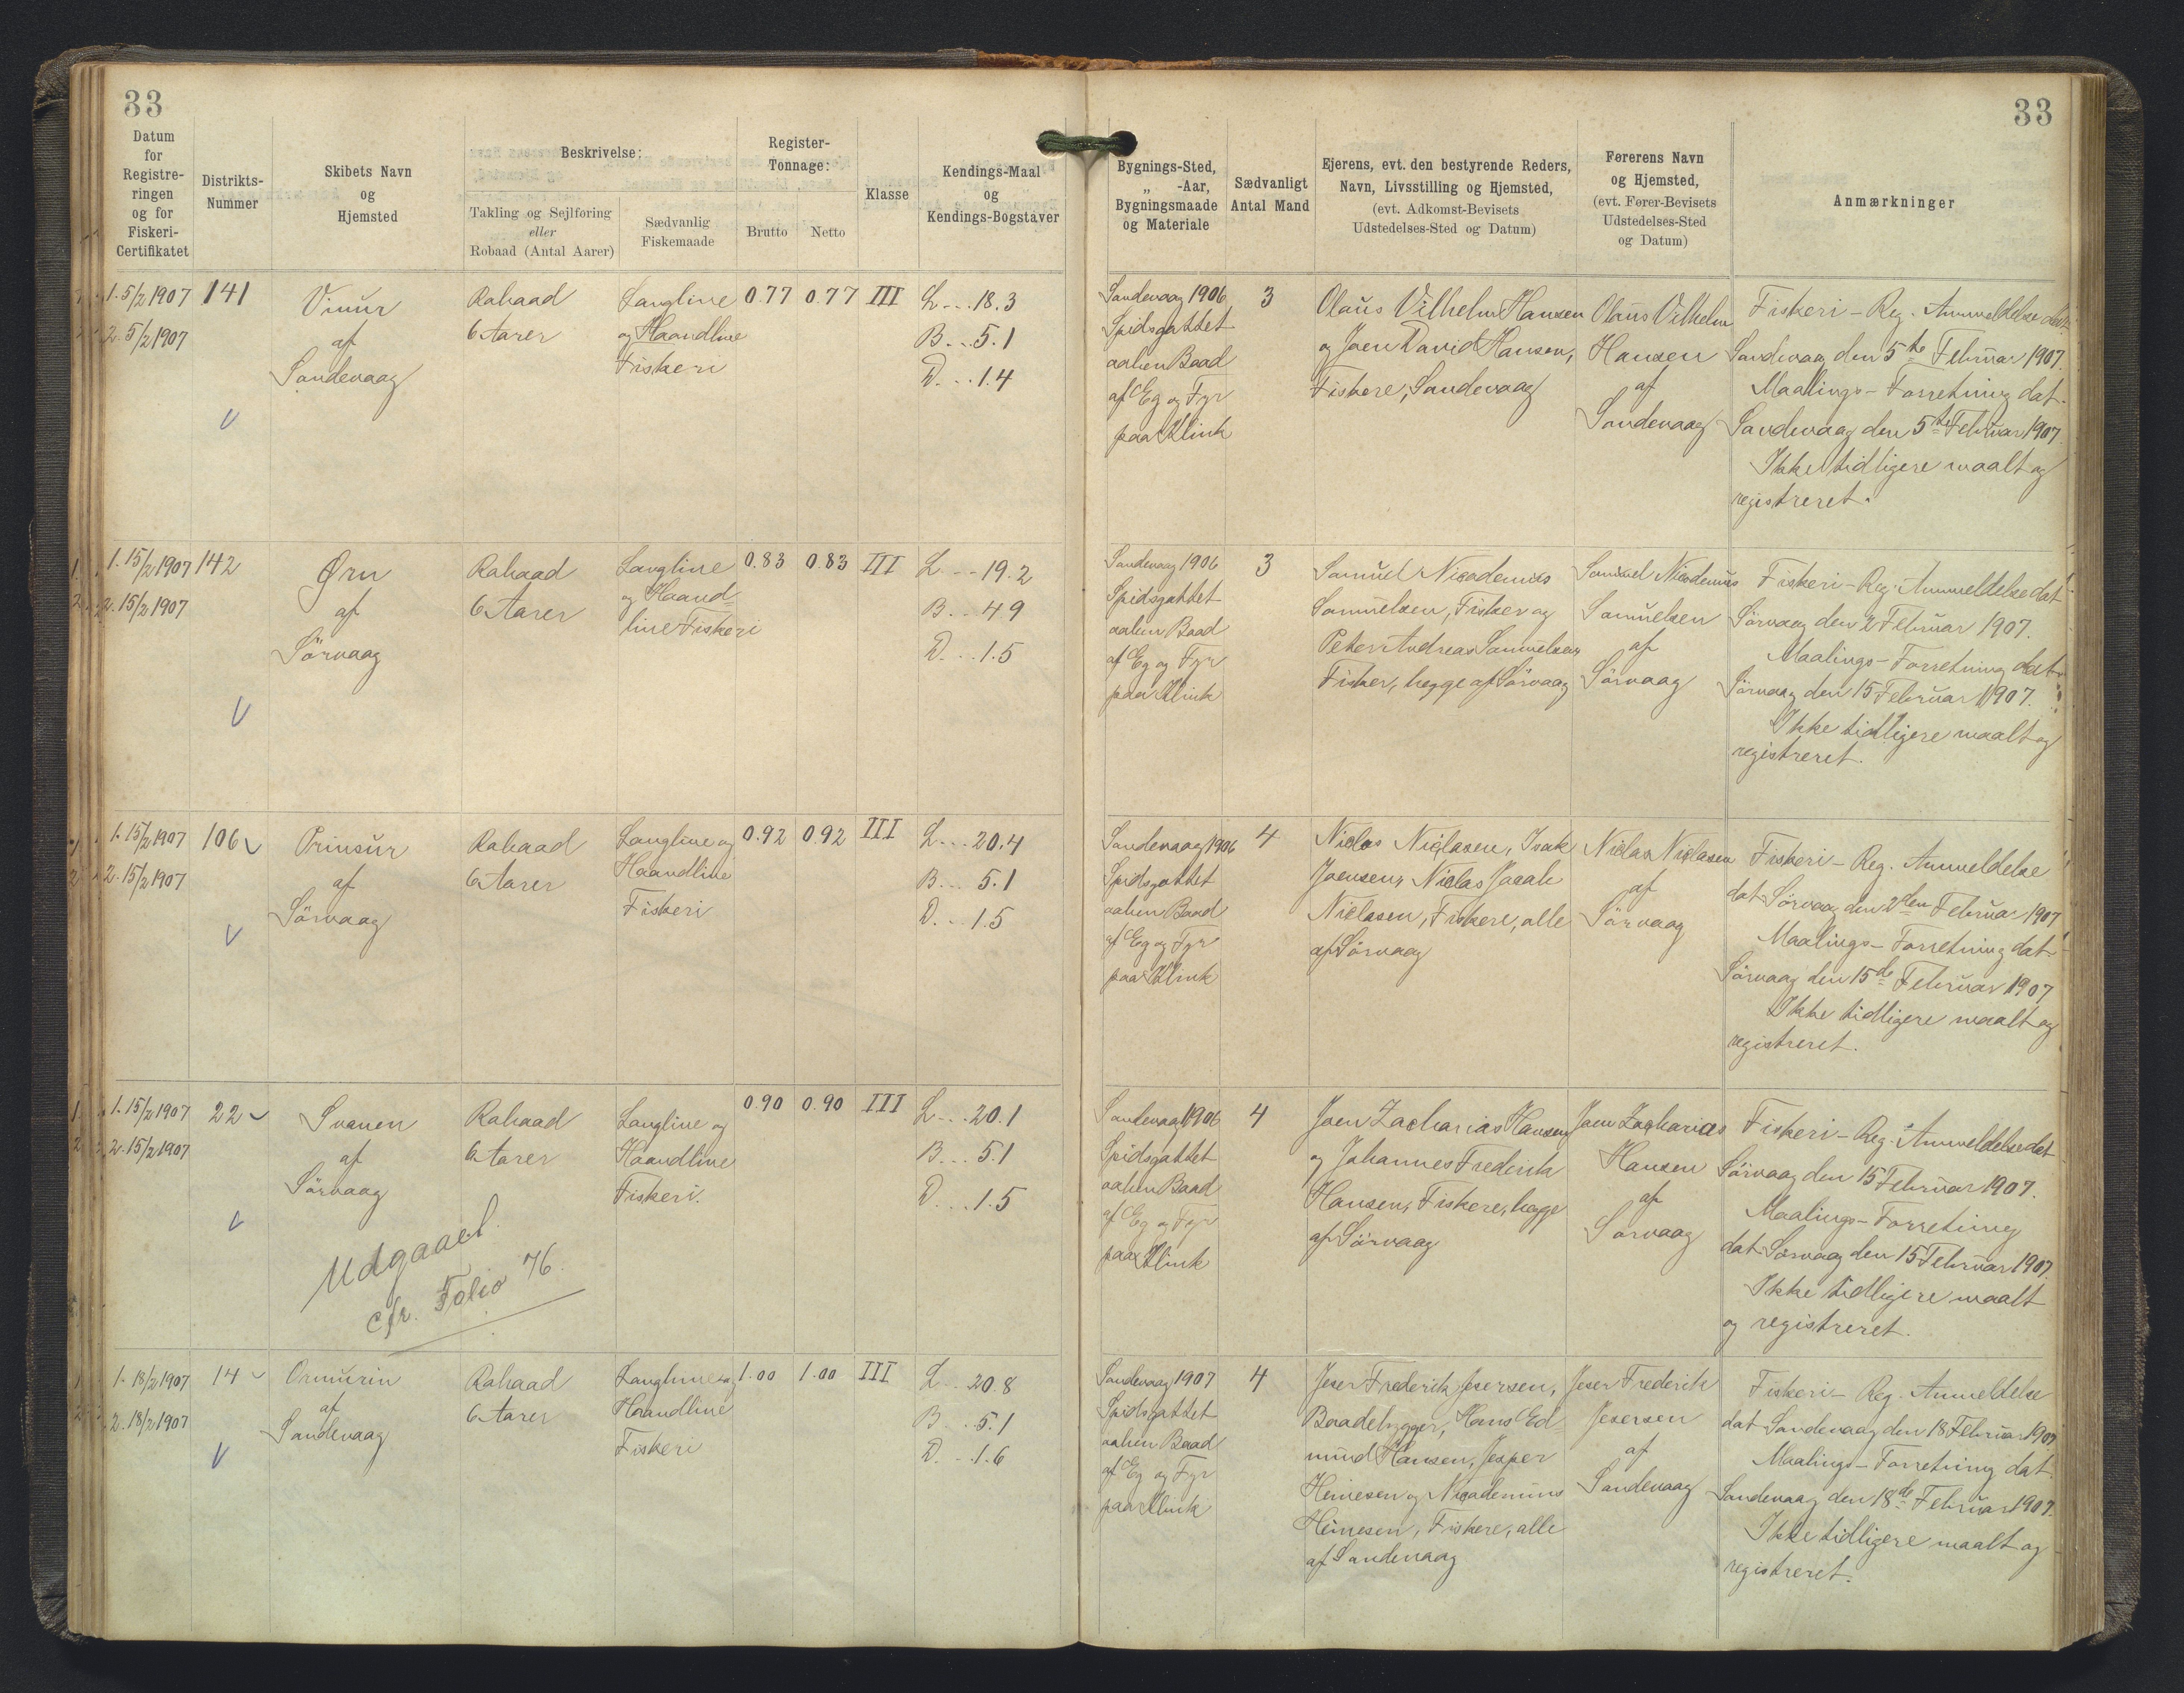 33
33
Datum
for
Registre-
ringen
og for
Fiskeri-
Certifikatet
Distrikts-
Nummer
Skibets Navn
og
Hjemsted
Beskrivelse:
Takling og Sejlføring
eller
Robaad (Antal Aarer)
Sædvanlig
Fiskemaade
Register-
Tonnage:
Brutto
Netto
Klasse
Kendings-Maal
og
Kendings-Bogstaver
Bygnings-Sted,
„ -Aar,
Bygningsmaade
og Materiale
Sædvanligt
Antal Mand
Ejerens, evt. den bestyrende Reders,
Navn, Livsstilling og Hjemsted,
(evt. Adkomst-Bevisets
Udstedelses-Sted og Datum)
Førerens Navn
og Hjemsted,
(evt. Fører-Bevisets
Udstedelses-Sted
og Datum)
Anmærkninger
1. 5/2 1907
2. 5/2 1907
141
Vinur
af
Sandevaag
Robaad
6 Aarer
Langline
og Haandline
Fiskeri
0.77
0.77
III
L...18.3
B...5.1
D...1.4
Sandevaag 1906
Spidsgattet
aaben Baad
af Eg og Fyr
paa Klink
3
Olaus Vilhelm Hansen
og Joen David Hansen,
Fiskere, Sandevaag
Olaus Vilhelm
Hansen
af
Sandevaag
Fiskeri-Reg. Anmeldelse dat.
Sandevaag den 5te Februar 1907.
Maalings-Forretning dat.
Sandevaag den 5te Februar 1907.
Ikke tidligere maalt og
registreret.
1. 15/2 1907
2. 15/2 1907
142
Ørn
af
Sörvaag
Robaad
6 Aarer
Langline
og Haand-
line Fiskeri
0.83
0.83
III
L...19.2
B...4.9
D...1.5
Sandevaag 1906
Spidsgattet
aaben Baad
af Eg og Fyr
paa Klink
3
Samuel Nicodemus
Samuelsen, Fisker og
Peter Andreas Samuelsen,
Fisker, begge af Sörvaag
Samuel Nicodemus
Samuelsen
af
Sörvaag
Fiskeri-Reg. Anmeldelse dat.
Sörvaag den 2 Februar 1907.
Maalings-Forretning dat.
Sörvaag den 15 Februar 1907.
Ikke tidligere maalt og
registreret.
1. 15/2 1907
2. 15/2 1907
106
Prinsur
af
Sörvaag
Robaad
6 Aarer
Langline og
Haandline
Fiskeri
0.92
0.92
III
L...20.4
B...5.1
D...1.5
Sandevaag 1906
Spidsgattet
aaben Baad
af Eg og Fyr
paa Klink
4
Niclas Niclasen, Isak
Joensen, Niclas Jacob
Niclasen, Fiskere, alle
af Sörvaag
Niclas Niclasen
af
Sörvaag
Fiskeri-Reg. Anmeldelse
dat. Sörvaag den 2den Februar 1907
Maalings-Forretning dat.
Sörvaag den 15de Februar 1907
Ikke tidligere maalt og
registreret.
1. 15/2 1907
2. 15/2 1907
22
Svanen
af
Sörvaag
Udgaaet
cfr. Folio 76.
Robaad
6 Aarer
Langline og
Haandline
Fiskeri.
0.90
0.90
III
L...20.1
B...5.1
D...1.5
Sandevaag 1906
Spidsgattet
aaben Baad
af Eg og Fyr
paa Klink
4
Joen Zacharias Hansen
og Johannes Frederik
Hansen, Fiskere, begge
af Sörvaag
Joen Zacharias
Hansen
af
Sörvaag
Fiskeri-Reg. Anmeldelse dat.
Sörvaag den 15 Februar 1907.
Maalings-Forretning
dat. Sörvaag den 15 Februar 1907.
Ikke tidligere maalt
og registreret.
1. 18/2 1907
2. 18/2 1907
14
Ormurin
af
Sandevaag
Robaad
6 Aarer
Langline og
Haandline
Fiskeri
1.00
1.00
III
L...20.8
B...5.1
D...1.6
Sandevaag 1907
Spidsgattet
aaben Baad
af Eg og Fyr
paa Klink
4
Jeser Frederik Jesersen,
Baadebygger, Hans Ed-
mund Hansen, Jesper
Heinesen og Nicodemus
Heinesen, Fiskere, alle
af Sandevaag
Jeser Frederik
Jesersen
af
Sandevaag
Fiskeri-Reg. Anmeldelse
dat. Sandevaag den 18 Februar 1907
Maalings-Forretning dat.
Sandevaag den 18de Februar 1907.
Ikke tidligere maalt og
registreret.